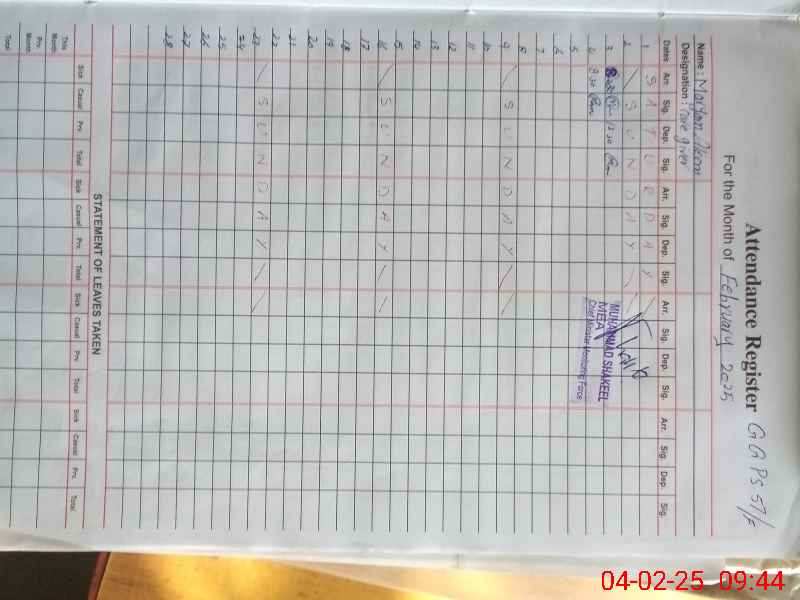 Attendance Register GGPS 57/F
For the Month of February 2025
Name : Maryam
Designation : Care giver
Dates Arr. Sig. Dep. Sig. Arr. Sig. Dep. Sig. Arr. Sig. Dep. Sig. Arr. Sig. Dep. Sig.
1 SATURDAY
2 SUNDAY
3 12 30
4 8 30
5
6
7
8
9 SUNDAY
10
11
12
13
14
15
16 SUNDAY
17
18
19
20
21
22
23 SUNDAY
24
25
26
27
28
MUHAMMAD SHAKEEL
MEA
Chief Minister Monitoring Force
STATEMENT OF LEAVES TAKEN
Sick Casual Prv. Total Sick Casual Prv. Total Sick Casual Prv. Total Sick Casual Prv. Total
This Month
Prv. Month
Total
04-02-25 09:44